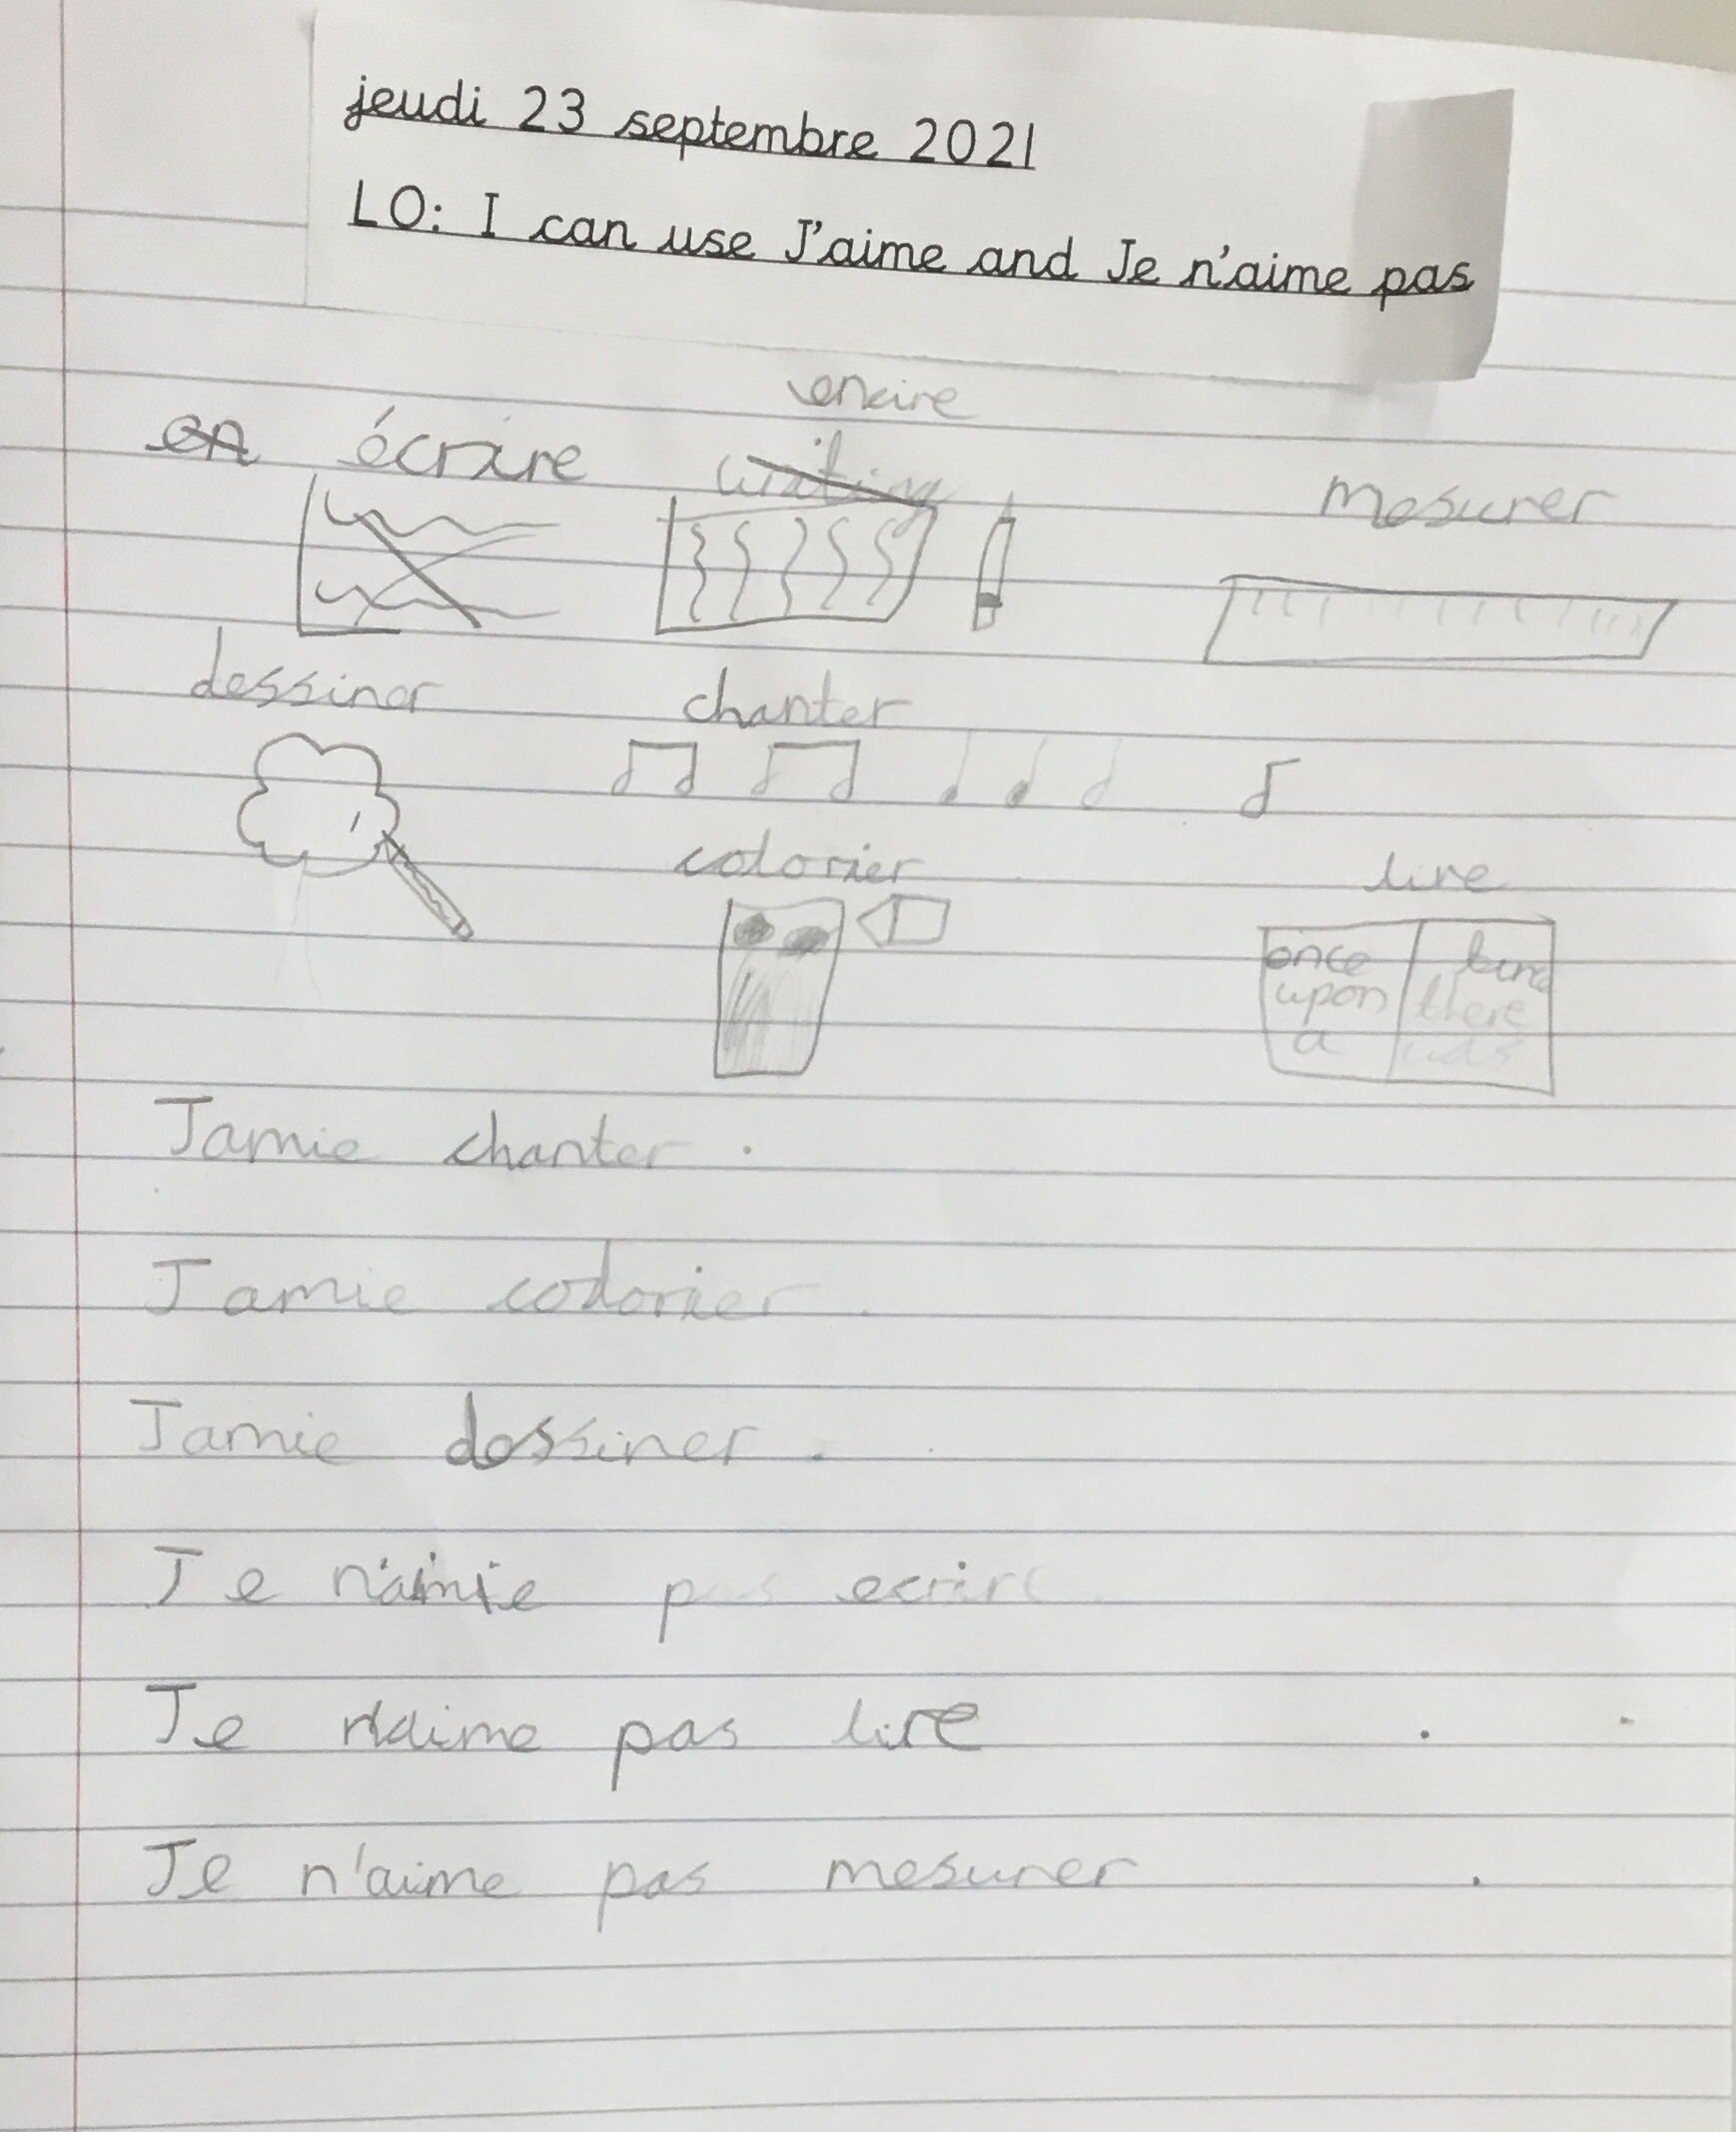 jeudi 23 septembre 2021
LO: I can use J'aime and Je n'aime pas
encire
en écrire writing mesurer
dessiner chanter
colorier lire
once
upon
a
time
there
was
Jamie chanter.
Jamie colorier.
Jamie dessiner.
Je n'aimie pas ecrire
Je n'aime pas lire .
Je n'aime pas mesurer .